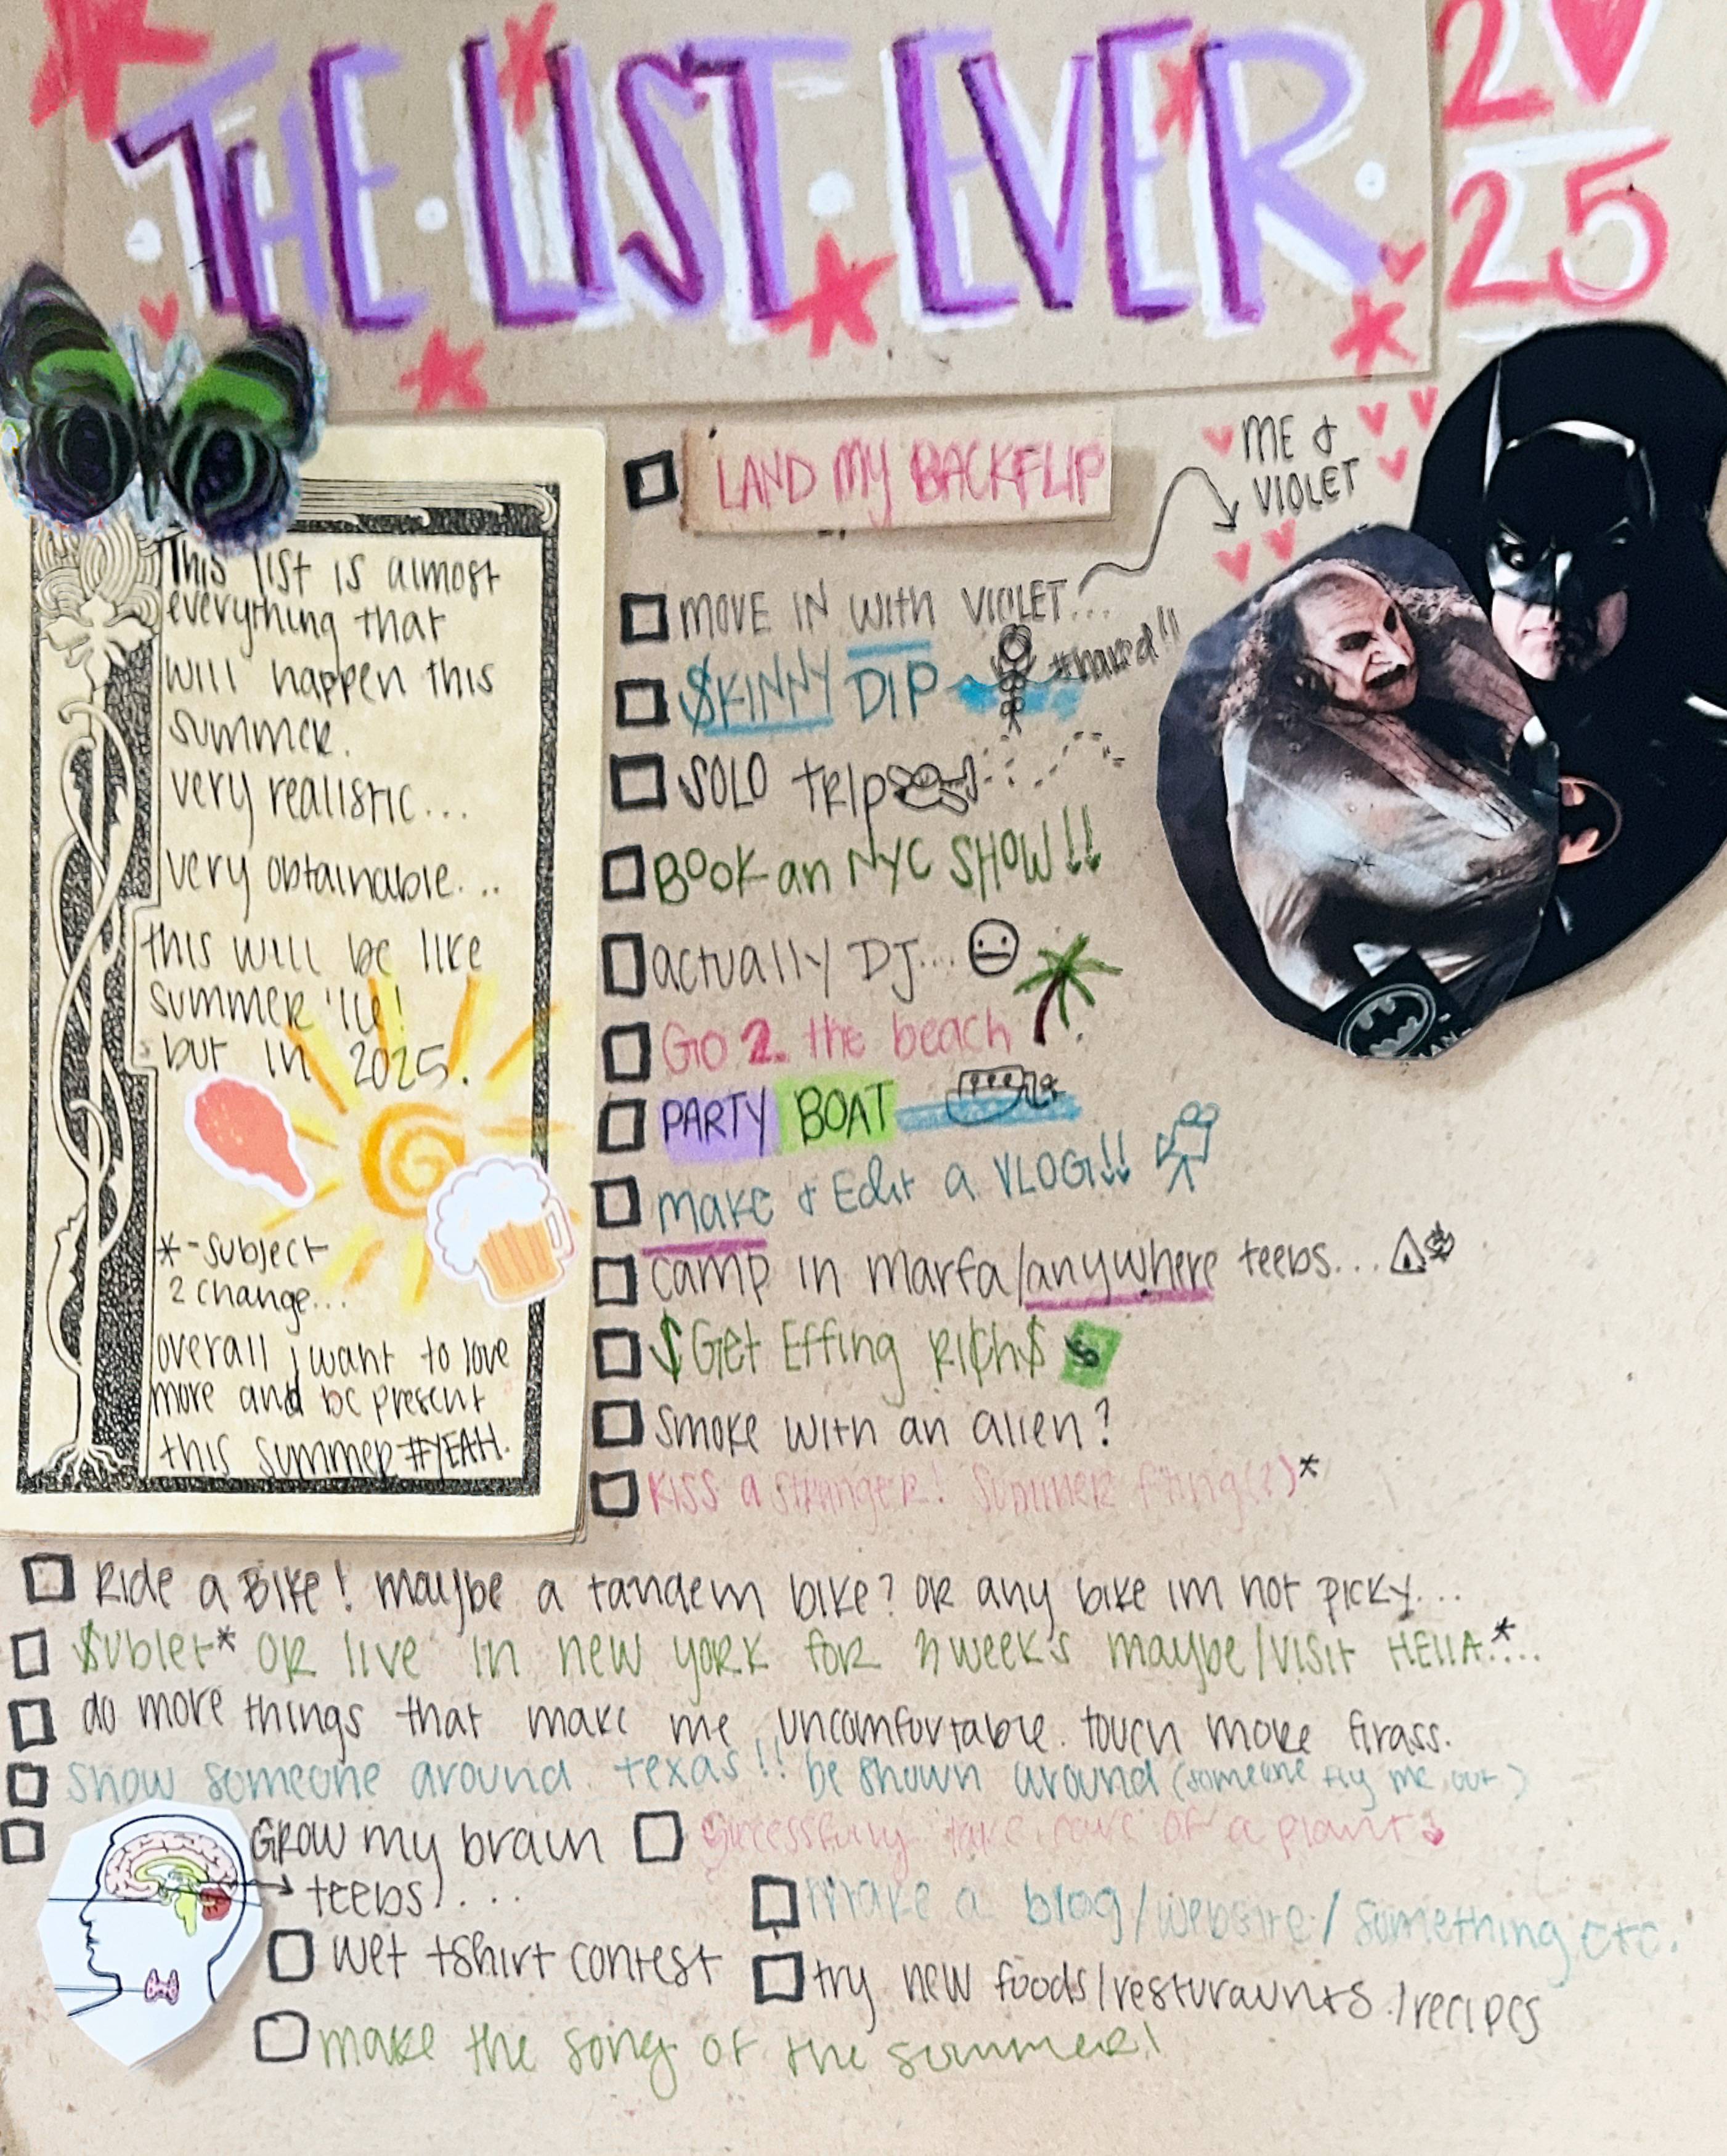 THE. LIST. EVER.
2
25
LAND MY BACKFLIP
ME &
VIOLET
This list is almost
everything that
will happen this
summer.
very realistic...
very obtainable...
this will be like
summer '16!
but in 2025.
*-subject
2 change...
overall i want to love
more and be present
this summer #YEAH.
MOVE IN with VIOLET...
$KINNY DIP
#naked!!
SOLO TRIP
BOOK an NYC SHOW!!
actually DJ...
GO 2 the beach
PARTY BOAT
make & Edit a VLOG!!
camp in marfa/anywhere teebs...
$Get Effing RI¢h$ $
smoke with an alien?
KISS a stranger! summer fling(?)*
Ride a Bike! maybe a tandem bike? OR any bike im not picky...
$ublet* OR live in new york for weeks maybe/visit HELLA*...
do more things that make me uncomfortable. touch more grass.
show someone around texas!! be shown around (someone fly me out)
GROW my brain
teebs!...
successfully take care of a plant
make a blog/website/something etc.
wet tshirt contest
try new foods/resturaunts/recipes
make the song of the summer!